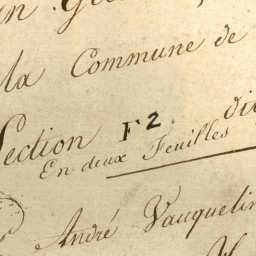 la Commune de
Section F2. di
En deux Feuilles
André Vauquelin